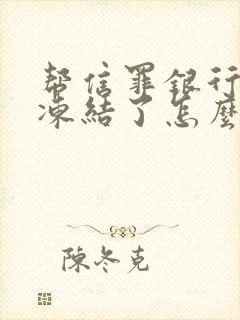 帮信罪银行
凍結了怎麼
陳冬克